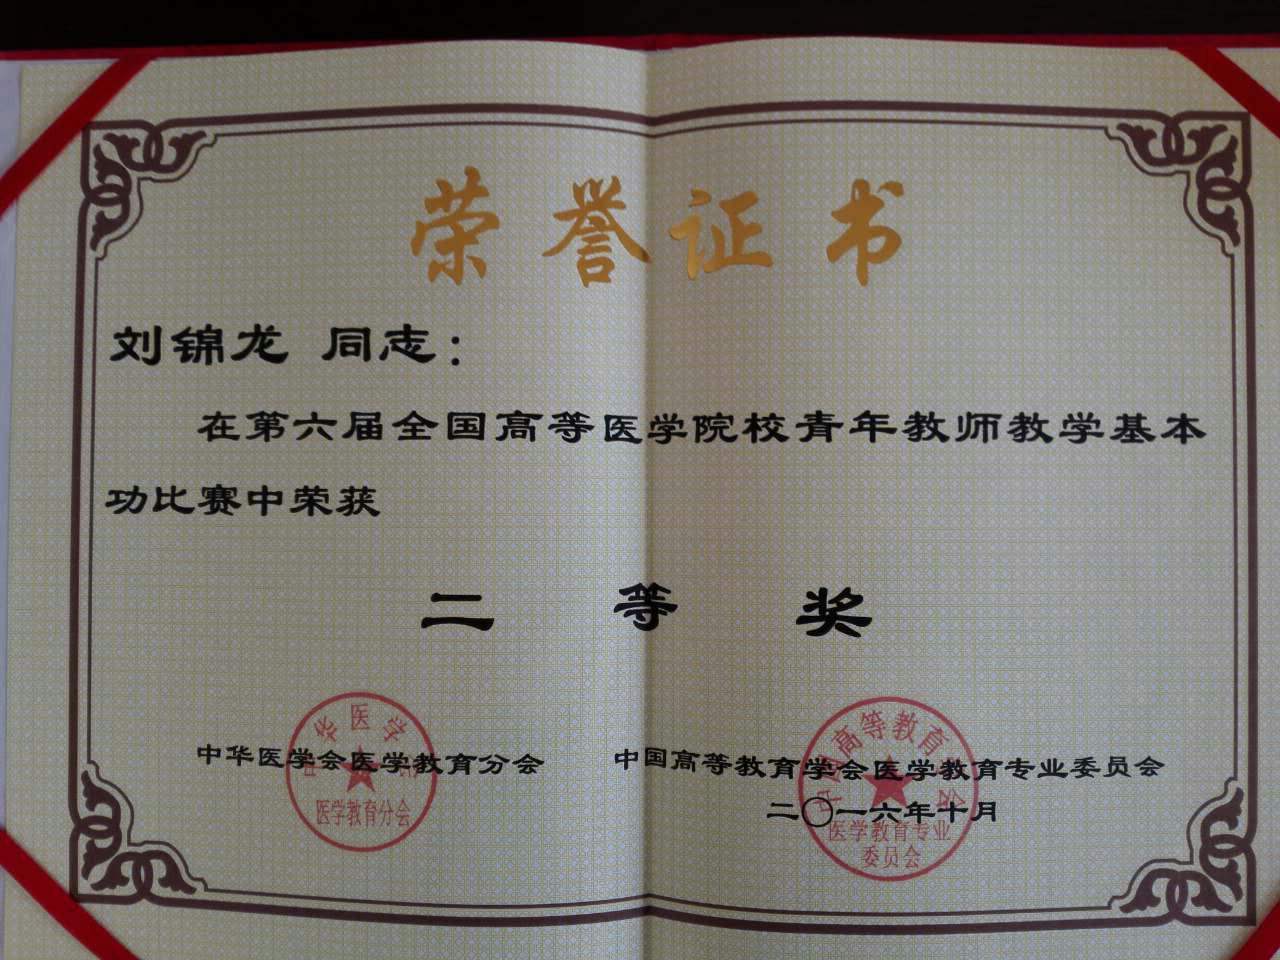 荣誉证书
刘锦龙 同志：
在第六届全国高等医学院校青年教师教学基本
功比赛中荣获
二等奖
中华医学会医学教育分会 中国高等教育学会医学教育专业委员会
二〇一六年十月
中华医学会
医学教育分会
中国高等教育学会
医学教育专业
委员会